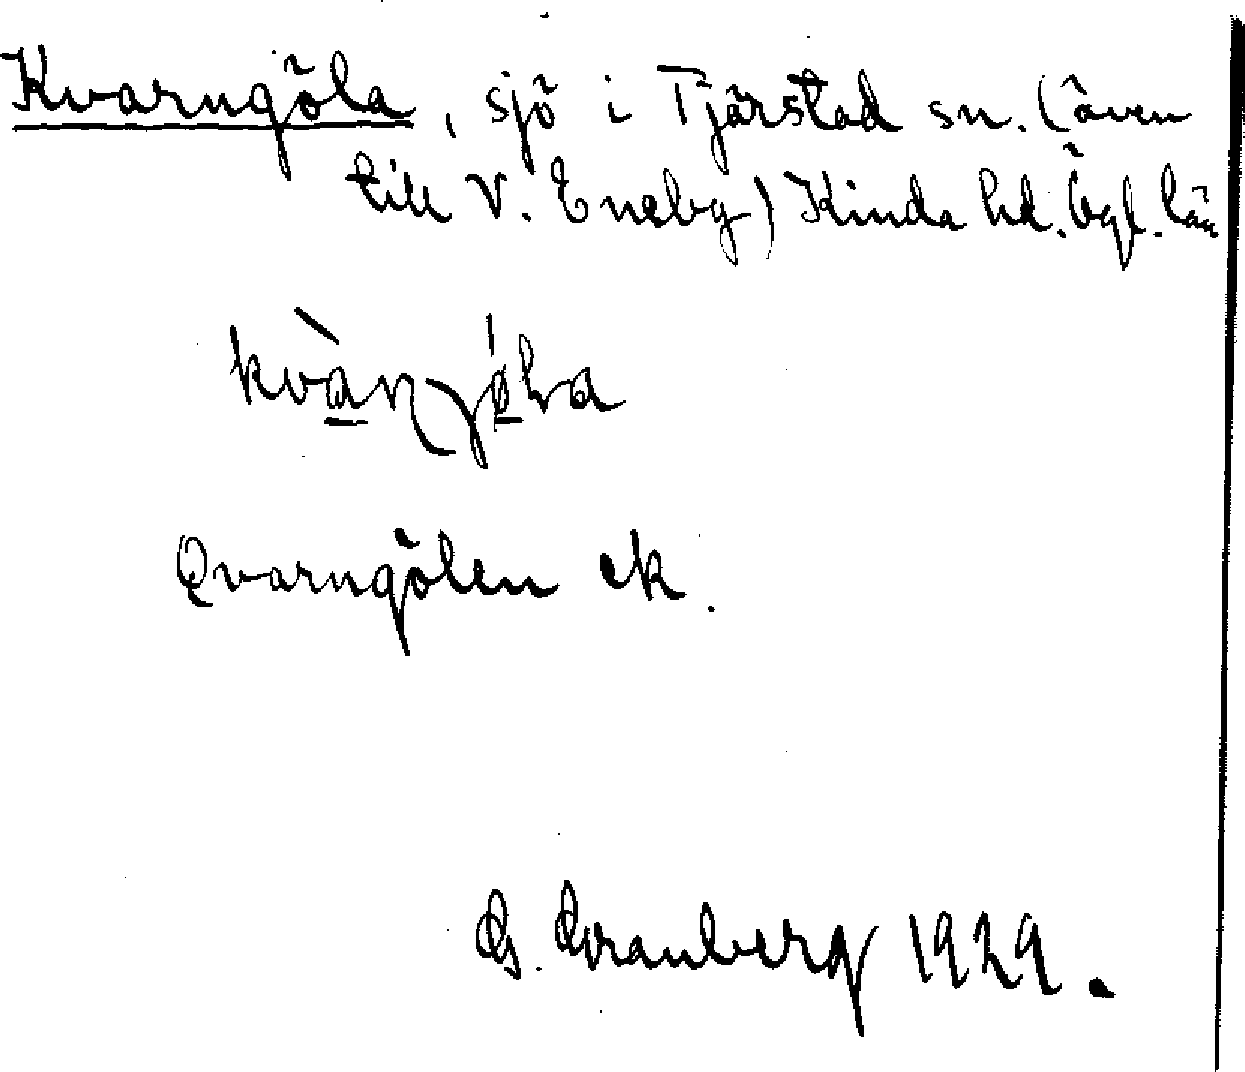 Kvarngöla, sjö i Tjärstad sn. (även
till V. Eneby) Kinda hd. Ögl. län
Qvarngölen ek.
G. Granberg 1929.